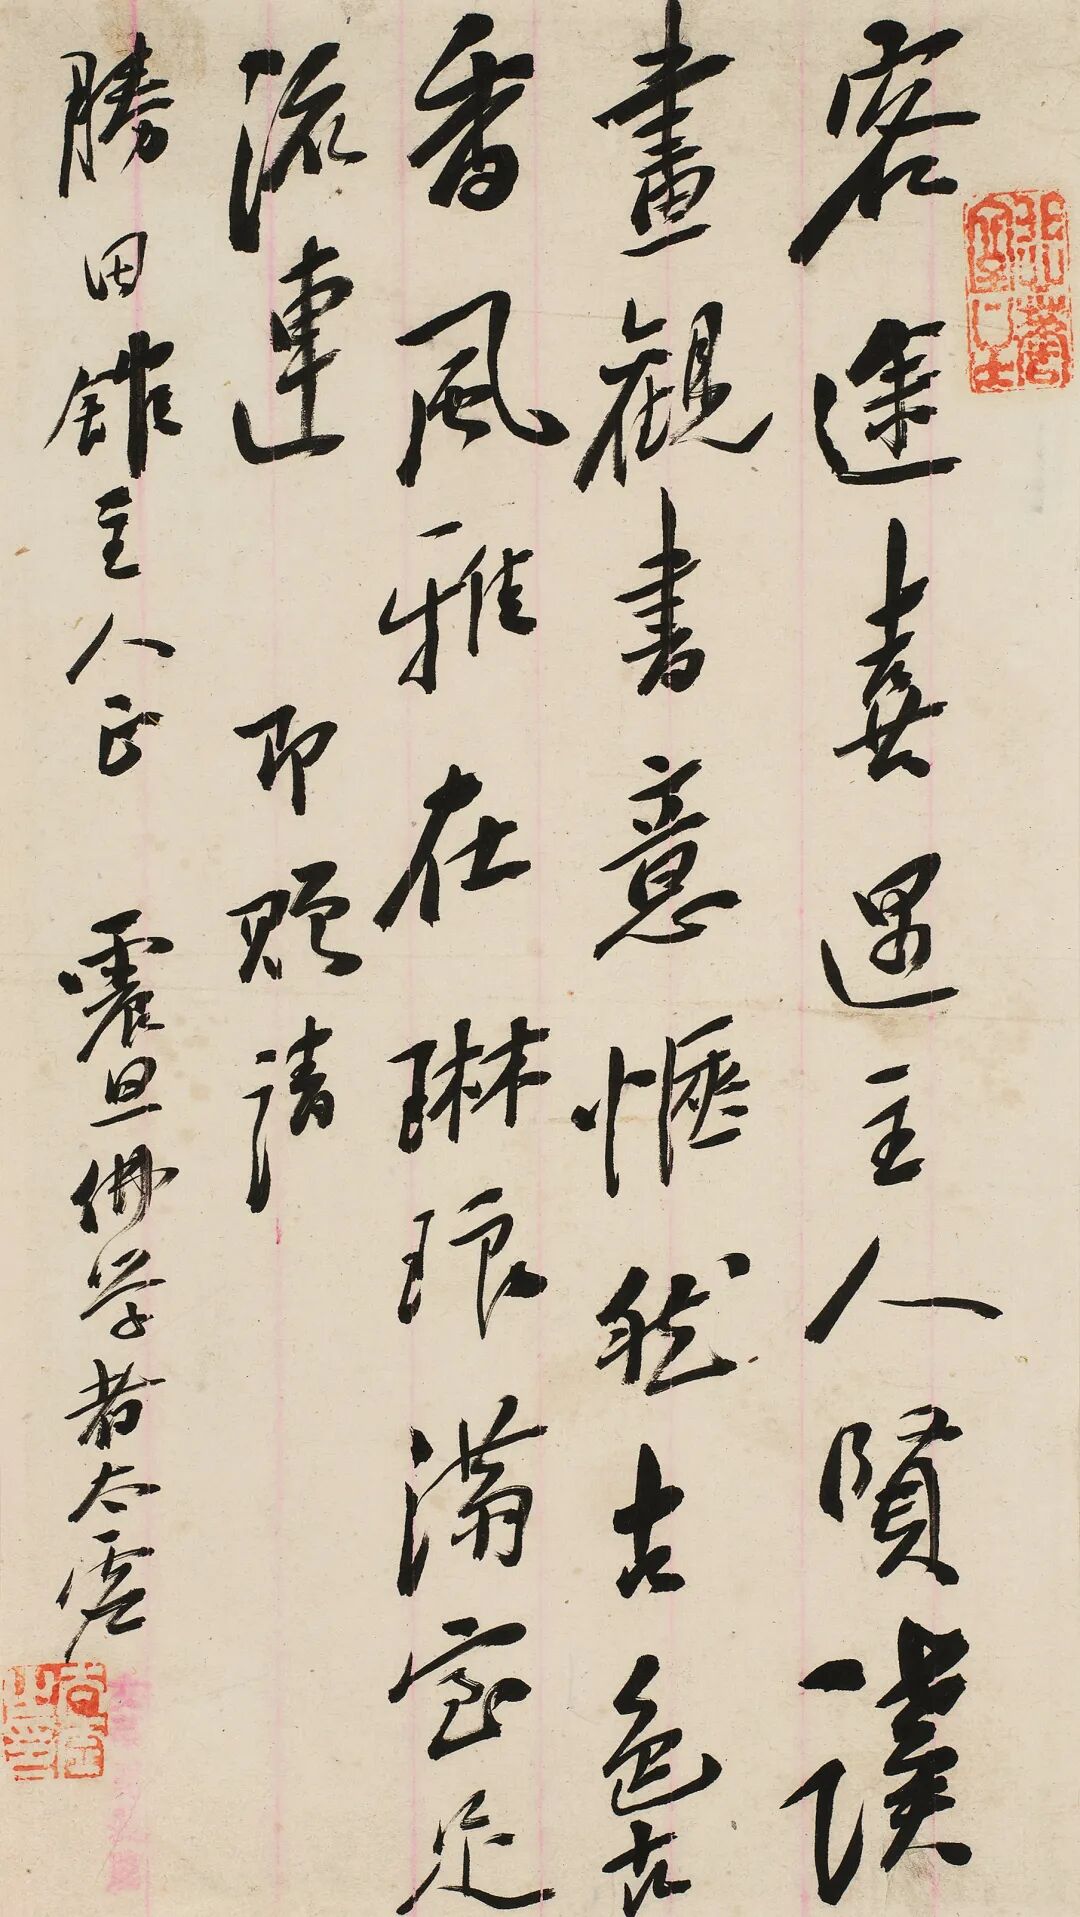 客途喜遇主人賢讀
畫觀書意愜然古色古
香風雅在琳琅滿室足
流連 即贈請
勝田舘主人正 震旦佛學者太虛